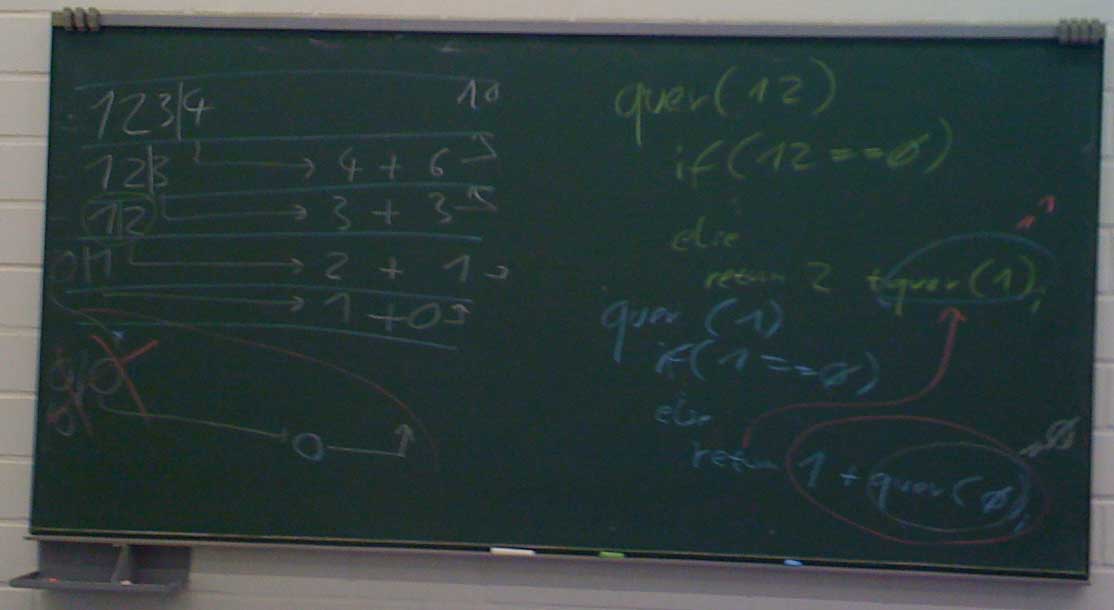 123|4 10
12|3 → 4 + 6
1|2 → 3 + 3
0|1 → 2 + 1
→ 1 + 0
0|0
0
quer(12)
if(12==ø)
else
return 2 + quer(1);
quer (1)
if(1==ø)
else
return 1 + quer(ø);
ø